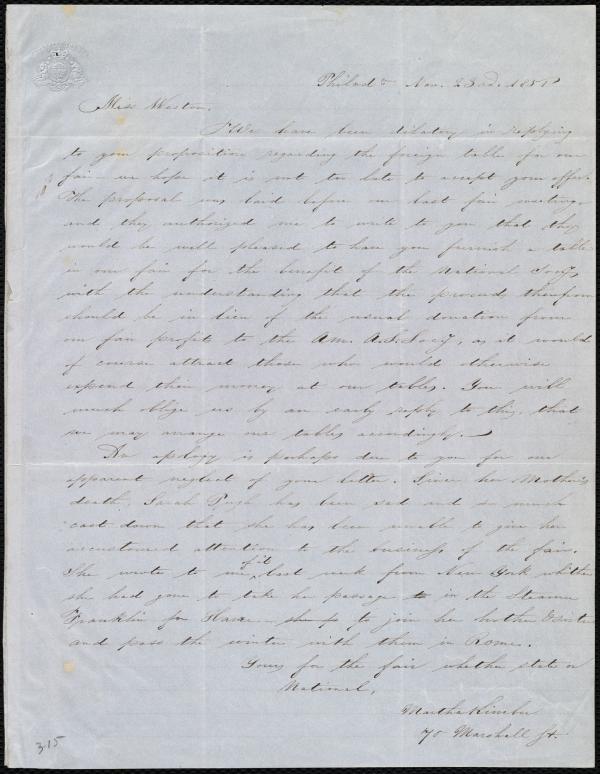 Philada Nov. 23rd. 1851
Miss Weston.
We have been dilatory in replying
to your proposition regarding the foreign table for our
fair we hope it is not too late to accept your offer.
The proposal was laid before our last fair meeting
and they authorized me to write to you that they
would be well pleased to have you furnish a table
in our fair for the benefit of the National Socy,
with the understanding that the proceeds therefrom
should be in lieu of the usual donation from
our fair profits to the Am. A.S. Socy, as it would
of course attract those who would otherwise
expend their money at our tables. You will
much oblige us by an early reply to this, that
we may arrange our tables accordingly.—
An apology is perhaps due to you for our
apparent neglect of your letter. Since her Mother's
death, Sarah Pugh has been sad and so much
cast down that she has been unable to give her
accustomed attention to the business of the fair.
She wrote to me of it last week from New York whither
she had gone to take her passage in the Steamer
Franklin for Havre – she is to join her brother &
and pass the winter with them in Rome.
Yours for the fair whether state or
National,
Martha Kimber
70 Marshall St.
315